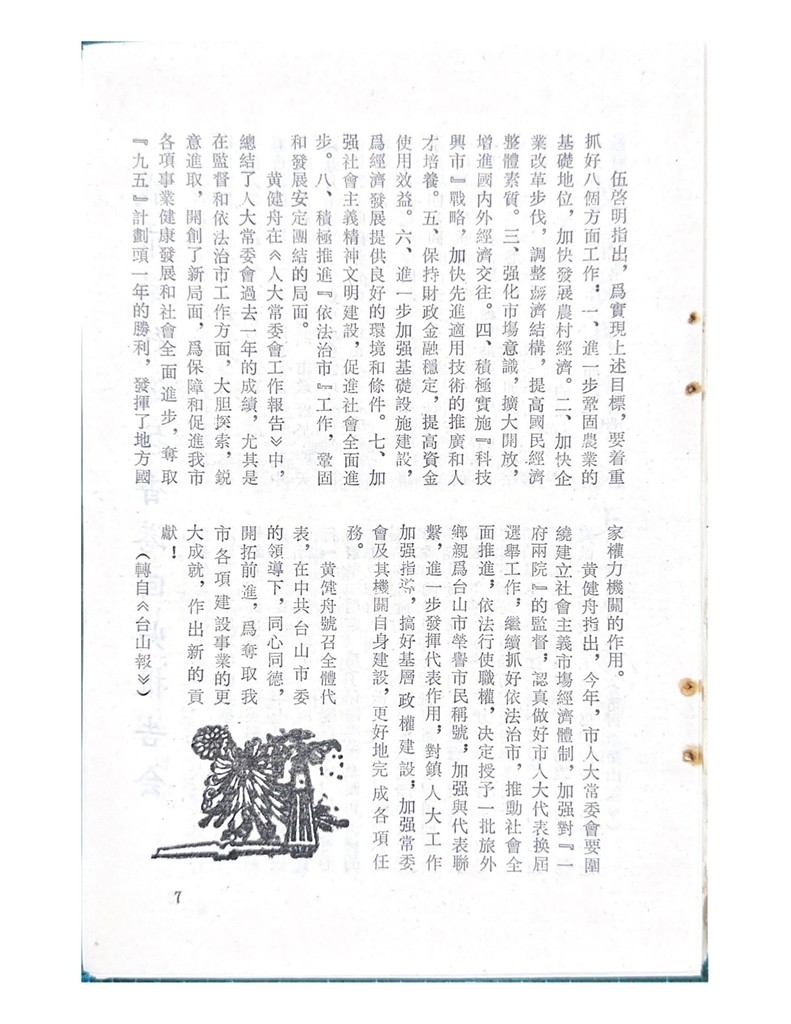 伍啓明指出，爲實現上述目標，要着重
抓好八個方面工作：一、進一步鞏固農業的
基礎地位，加快發展農村經濟。二、加快企
業改革步伐，調整經濟結構，提高國民經濟
整體素質。三、强化市場意識，擴大開放，
增進國内外經濟交往。四、積極實施『科技
興市』戰略，加快先進適用技術的推廣和人
才培養。五、保持財政金融穩定，提高資金
使用效益。六、進一步加强基礎設施建設，
爲經濟發展提供良好的環境和條件。七、加
强社會主義精神文明建設，促進社會全面進
步。八、積極推進『依法治市』工作，鞏固
和發展安定團結的局面。
黄健舟在《人大常委會工作報告》中，
總結了人大常委會過去一年的成績，尤其是
在監督和依法治市工作方面，大胆探索，鋭
意進取，開創了新局面，爲保障和促進我市
各項事業健康發展和社會全面進步，奪取
『九五』計劃頭一年的勝利，發揮了地方國
家權力機關的作用。
黄健舟指出，今年，市人大常委會要圍
繞建立社會主義市場經濟體制，加强對『一
府兩院』的監督，認真做好市人大代表换届
選舉工作，繼續抓好依法治市，推動社會全
面推進，依法行使職權，决定授予一批旅外
鄉親爲台山市榮譽市民稱號，加强與代表聯
繫，進一步發揮代表作用，對鎮人大工作
加强指導，搞好基層政權建設，加强常委
會及其機關自身建設，更好地完成各項任
務。
黄健舟號召全體代
表，在中共台山市委
的領導下，同心同德，
開拓前進，爲奪取我
市各項建設事業的更
大成就，作出新的貢
獻！
（轉自《台山報》）
7